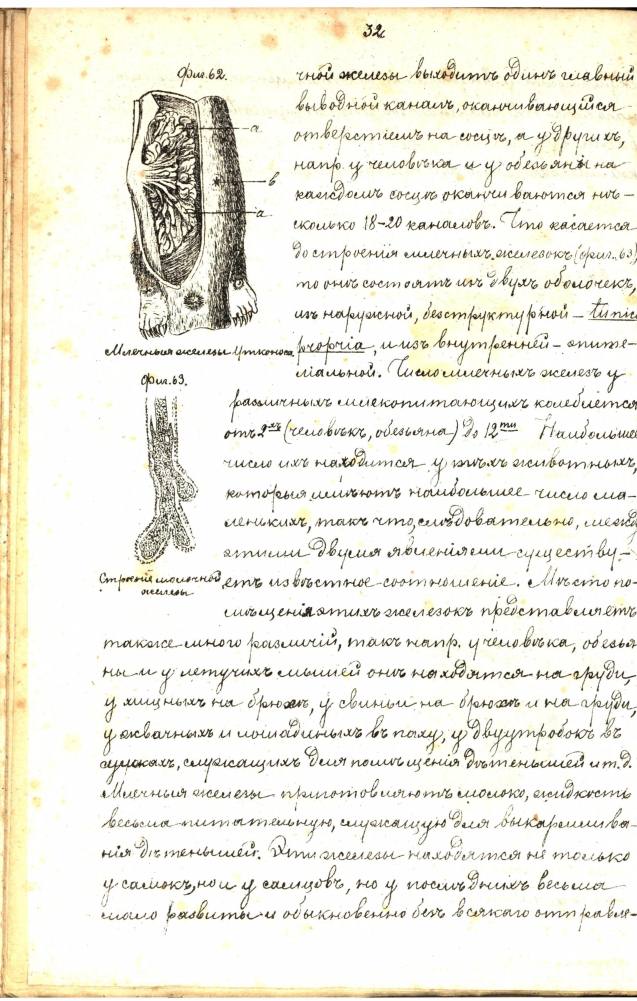 32
Фиг. 62.
чной железы выходитъ одинъ главный
выводной каналъ, оканчивающійся
отверстіемъ на сосцѣ, а у другихъ,
напр. у человѣка и у обезьяны на
каждомъ сосцѣ оканчиваются нѣ-
сколько 18-20 каналовъ. Что касается
до строенія млечныхъ железокъ (фиг. 63),
то онѣ состоятъ изъ двухъ оболочекъ,
изъ наружной, безструктурной - tunica
propria, и изъ внутренней - эпите-
ліальной. Число млечныхъ железъ у
а
в
а
Млечныя железы Утконоса.
Фиг. 63.
различныхъ млекопитающихъ колеблется
отъ 2-хъ (человѣкъ, обезьяна) до 12ти Наибольшее
число ихъ находится у тѣхъ животныхъ,
которыя имѣютъ наибольшее число ма-
ленькихъ, такъ что, слѣдовательно, между
этими двумя явленіями существу-
етъ извѣстное соотношеніе. Мѣсто по-
мѣщенія этихъ железокъ представляетъ
Строеніе молочной
железы
также много различій, такъ напр. у человѣка, обезья
ны и у летучихъ мышей онѣ находятся на груди,
у хищныхъ на брюхѣ, у свиньи на брюхѣ и на груди,
у жвачныхъ и лошадиныхъ въ паху, у двуутробокъ въ
сумкахъ, служащихъ для помѣщенія дѣтенышей и т.д.
Млечныя железы приготовляютъ молоко, жидкость
весьма питательную, служащую для выкармлива-
нія дѣтенышей. Эти железы находятся не только
у самокъ, но и у самцовъ, но у послѣднихъ весьма
мало развиты и обыкновенно безъ всякаго отправле-